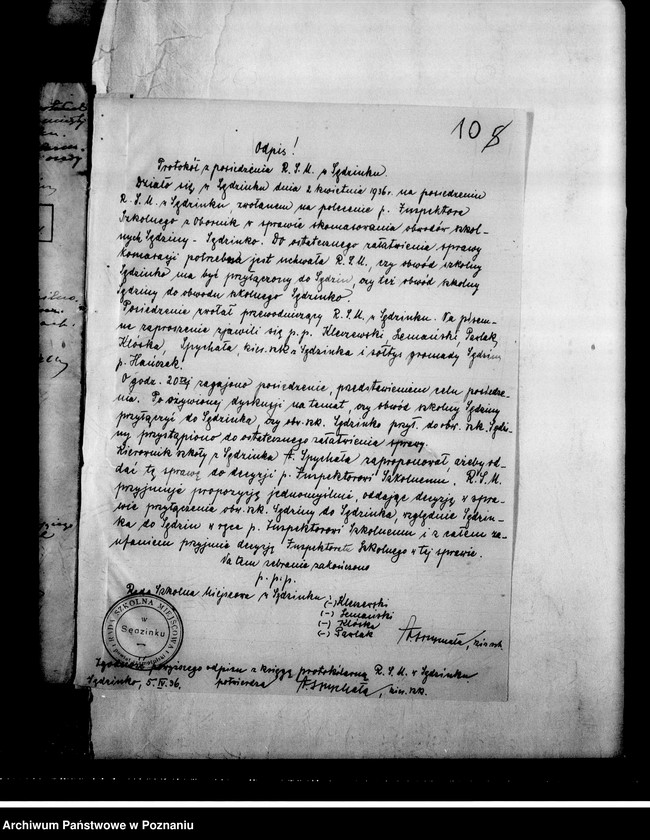 108
Odpis!
Protokół z posiedzenia R.S.M. w Sędzinku.
Działo się w Sędzinku dnia 2 kwietnia 1936r. na posiedzeniu
R.S.M. w Sędzinku, zwołanem na polecenie p. Inspektora
Szkolnego z Obornik w sprawie skomasowania obwodów szkol-
nych Sędziny - Sędzinko. Do ostatecznego załatwienia sprawy
komasacji potrzebna jest uchwała R.S.M., czy obwód szkolny
Sędzinko ma być przyłączony do Sędzin, czy też obwód szkolny
Sędziny do obwodu szkolnego Sędzinko.
Posiedzenie zwołał przewodniczący R.S.M. w Sędzinku. Na pisem-
ne zaproszenie zjawili się p.p. Kleszewski, Semański, Pawlak,
Klóska, Spychała, kier. szk. z Sędzinka i sołtys gromady Sędziny
p. Hańczak.
O godz. 20tej zagajono posiedzenie, przedstawieniem celu posiedze-
nia. Po ożywionej dyskusji na temat, czy obwód szkolny Sędziny
przyłączyć do Sędzinka, czy obw. szk. Sędzinko przył. do obw. szk. Sędzi-
ny przystąpiono do ostatecznego załatwienia sprawy.
Kierownik szkoły z Sędzinka A. Spychała zaproponował ażeby od-
dać tę sprawę do decyzji p. Inspektorowi Szkolnemu. R.S.M.
przyjmuje propozycję jednomyślnie, oddając decyzję w spra-
wie przyłączenia obw. szk. Sędziny do Sędzinka, względnie Sędzin-
ka do Sędzin w ręce p. Inspektorowi Szkolnemu i z całem za-
ufaniem przyjmie decyzję Inspektorat Szkolnego w tej sprawie.
Na tem zebranie zakończono
p. p. p.
Rada Szkolna Miejscowa w Sędzinku
(-) Kleszewski
(-) Semański
(-) Klóska
(-) Pawlak
A. Spychała, kier. szk.
RADA SZKOLNA MIEJSCOWA
w
Sędzinku
Zgodność powyższego odpisu z księgą protokólarną R.S.M. w Sędzinku
Sędzinko, 5.IV.36. potwierdza A. Spychała, kier. szk.
Archiwum Państwowe w Poznaniu